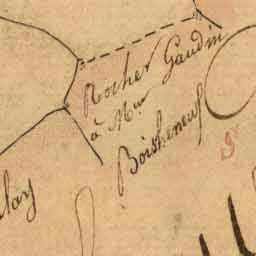 Rocher Gaudin
à Mr
Boisheneuf
lay